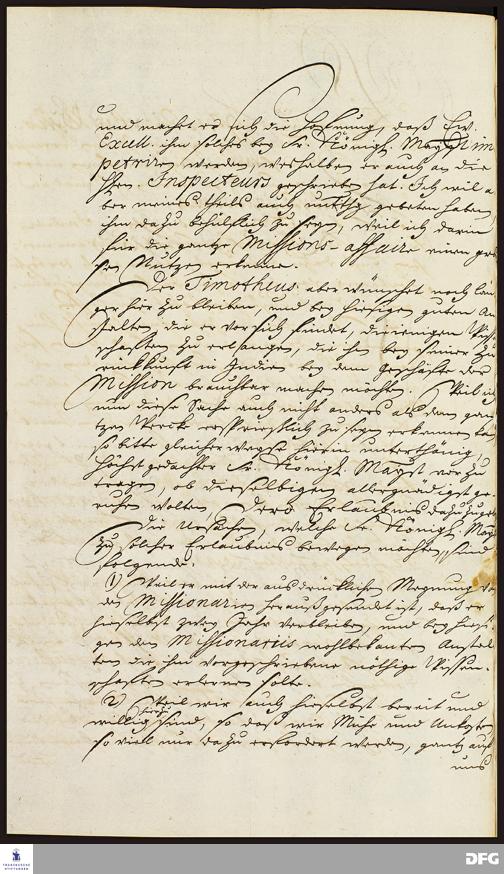 und machet er sich die Hofnung, daß Ew.
Excell. ihm solches bey Sr. Königl. Mayst. im
petriren werden, weshalben er auch an die
HHen. Inspecteurs geschrieben hat. Ich will a
ber meines theils auch unterth. gebeten haben
ihm dazu behülflich zu seyn, weil ich darin
für die gantze Missions-affaire einen gros
sen Nutzen erkenne.
Der Timotheus aber wünschet noch län
ger hier zu bleiben, und bey hiesigen guten An
stalten, die er vor sich findet, diejenigen Wiss
schaften zu erlangen, die ihn bey seiner Zu
rückkunft in Indien bey dem Geschäfte der
Mission brauchbar machen möchten. Weil ich
nun diese Sache auch nicht anders als dem gan
tzen Wercke ersprießlich zu seyn erkennen kan
so bitte gleicher weyse hierin unterthänig,
höchst gedachter Sr. Königl. Mayst. vor zu
tragen, ob dieselbigen allergnädigst ge
ruhen wolten, Dero Erlaubnis dazu zu
Die Ursachen, welche Sr. Königl. Mayst
zu solcher Erlaubnis bewegen möchten, sind
folgende.
1) Weil er mit der ausdrücklichen Meynung von
den Missionarien herausgesandt ist, daß er
hieselbst zwey Jahr verbleiben und bey hiesi
gen den Missionariis wohlbekanten Anstal
ten die ihm vorgeschriebene nöthige Wissen-
schaften erlernen solte.
2) Weil wir auch hieselbst bereit und
willig hierzu sind, so daß wir Mühe und Unkosten
so viel nur dazu erfordert werden, gantz auf
uns
FRANCKESCHE STIFTUNGEN
DFG